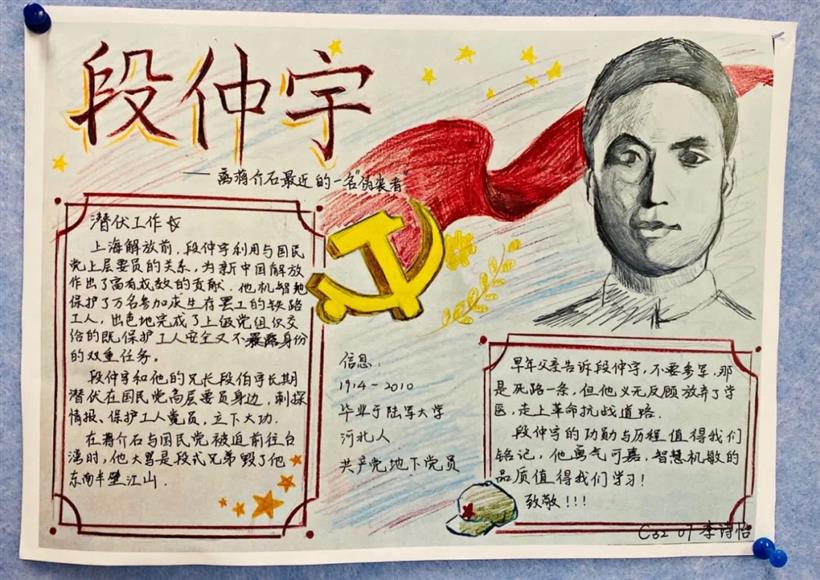 段仲宇
——离蒋介石最近的一名"伪装者"
潜伏工作者
上海解放前，段仲宇利用与国民
党上层要员的关系，为新中国解放
作出了富有成效的贡献．他机智地
保护了万名参加求生存罢工的铁路
工人，出色地完成了上级党组织交
给的既保护工人安全又不暴露身份
的双重任务。
段仲宇和他的兄长段伯宇长期
潜伏在国民党高层要员身边，刺探
情报、保护工人党员，立下大功．
在蒋介石与国民党被迫前往台
湾时，他大骂是段式兄弟毁了他
东南半壁江山．
信息：
1914－2010
毕业于陆军大学
河北人
共产党地下党员
早年父亲告诉段仲宇，不要参军，那
是死路一条，但他义无反顾放弃了学
医，走上革命抗战道路．
段仲宇的功勋与历程值得我们
铭记，他勇气可嘉，智慧机敏的
品质值得我们学习！
致敬！！！
C32 07 李诗怡